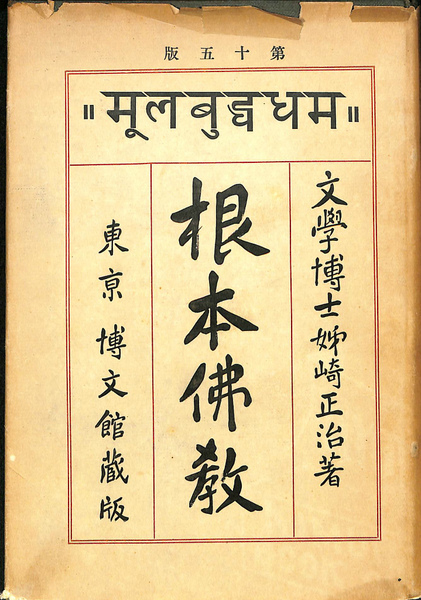 第十五版
॥ मूलबुद्धधम ॥
文學博士姊崎正治著
根本佛教
東京 博文館藏版